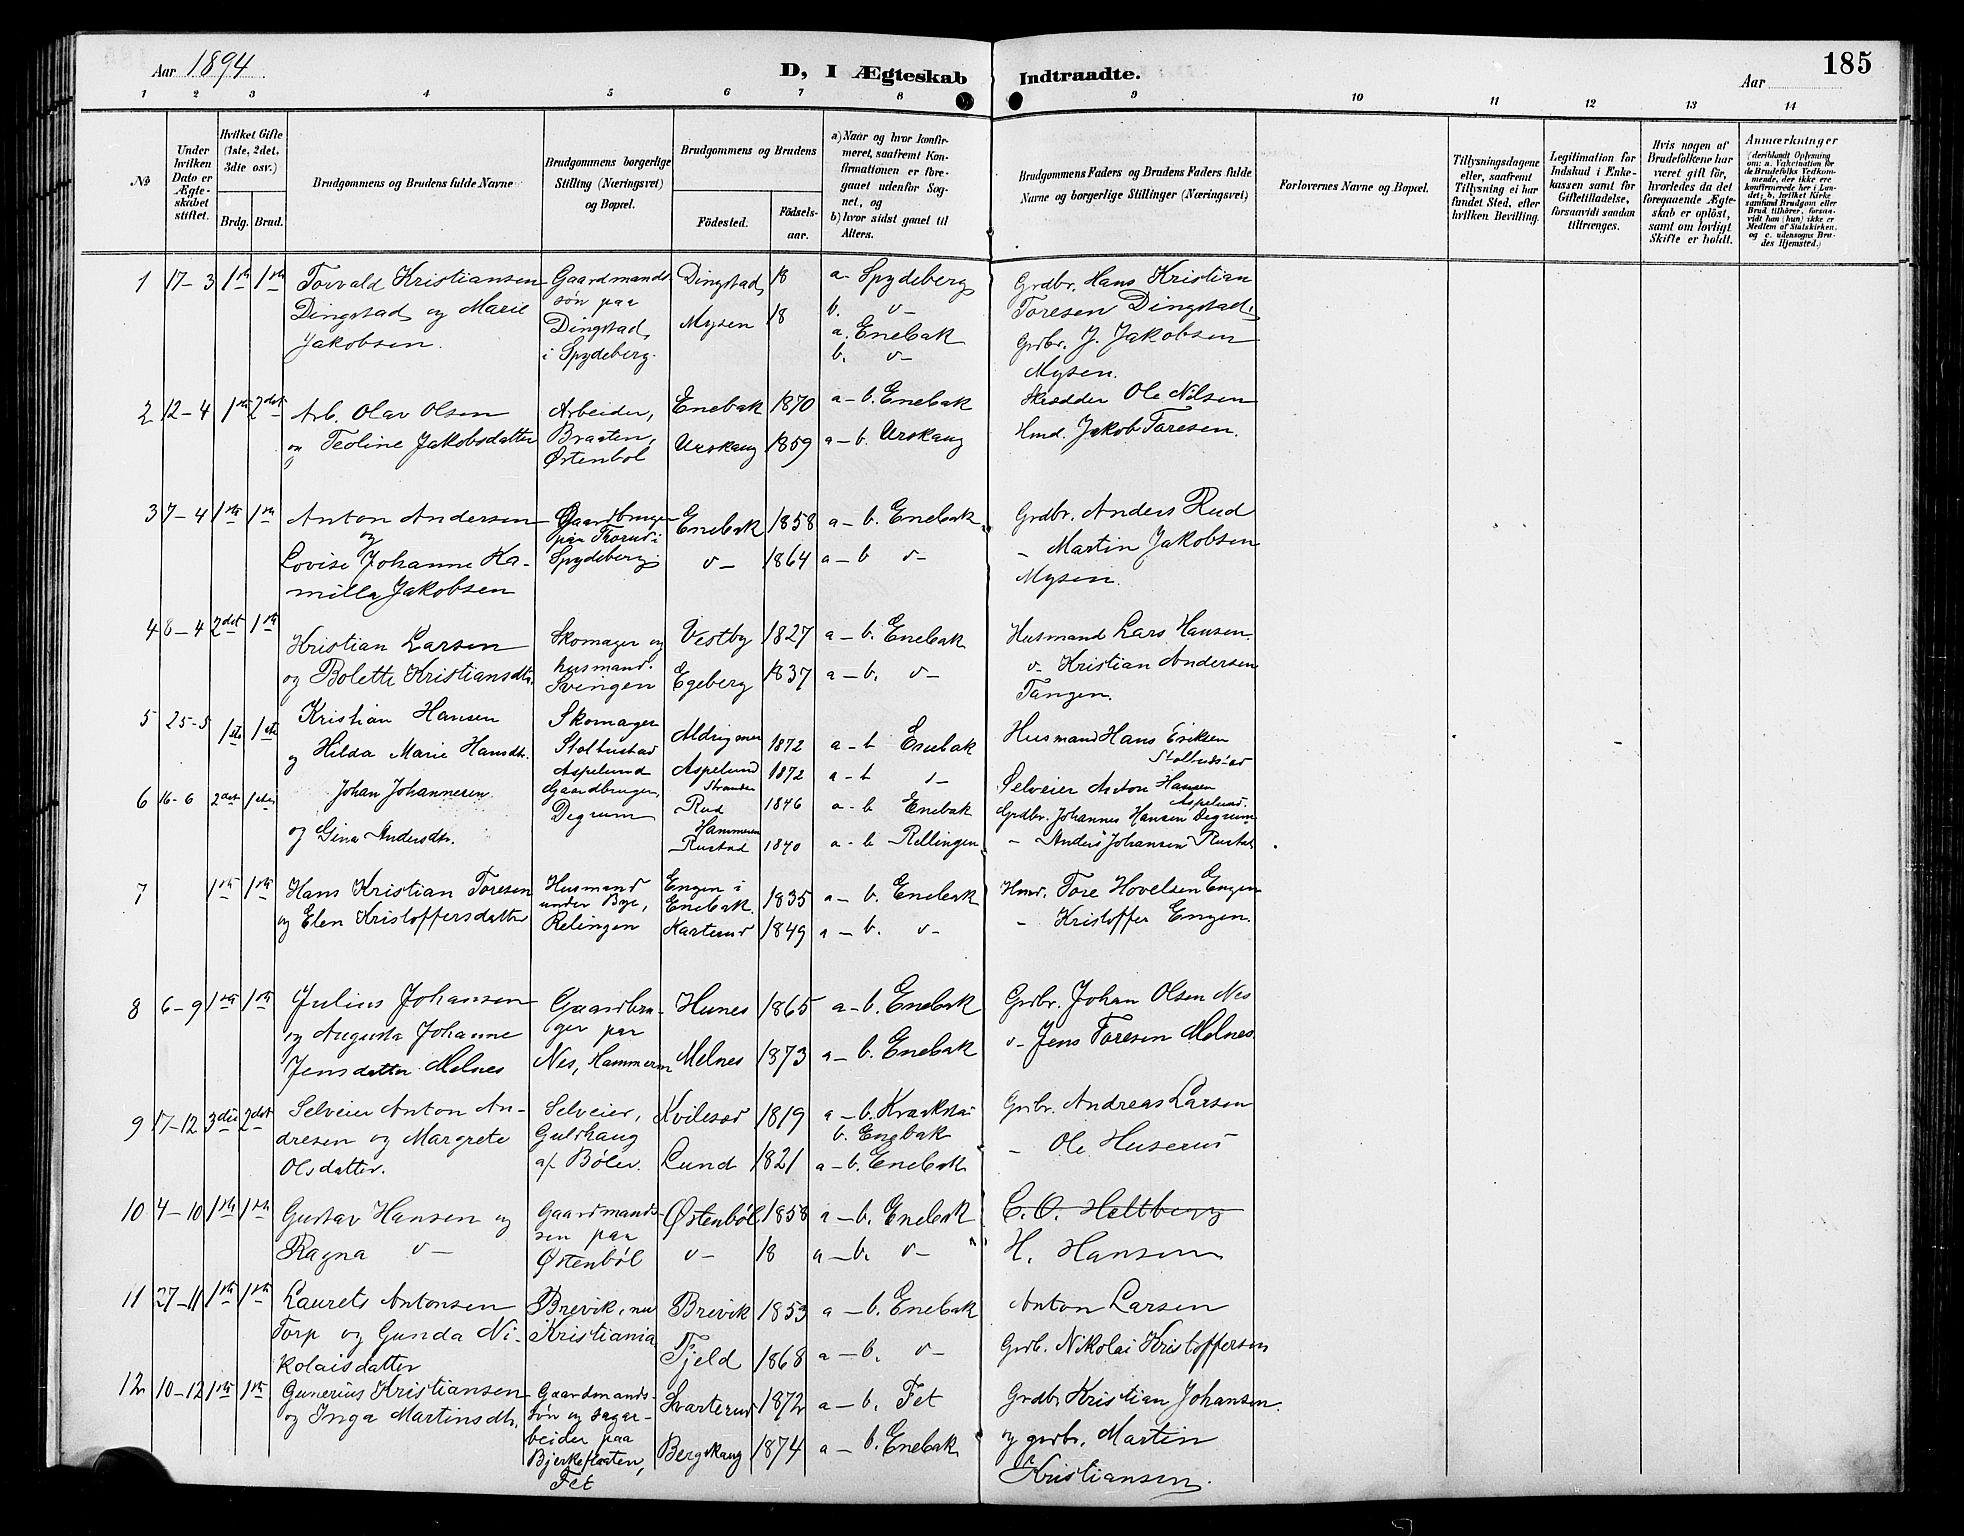 Aar 1894
D, I Ægteskab Indtraadte.
Aar
185
1 2 3 4 5 6 7 8 9 10 11 12 13 14
No
Under hvilken Dato er Ægteskabet stiftet.
Hvilket Gifte (1ste, 2det, 3die osv.)
Brdg. Brud.
Brudgommens og Brudens fulde Navne
Brudgommens borgerlige Stilling (Næringsvei) og Bopæl.
Brudgommens og Brudens
Födested.
Födselsaar.
a) Naar og hvor konfirmeret, saafremt Konfirmationen er foregaaet udenfor Sognet, og
b) hvor sidst gaaet til Alters.
Brudgommens Faders og Brudens Faders fulde Navne og borgerlige Stillinger (Næringsvei)
Forlovernes Navne og Bopæl.
Tillysningsdagene eller, saafremt Tillysning ei har fundet Sted, efter hvilken Bevilling.
Legitimation for Indskud i Enkekassen samt for Giftetilladelse, forsaavidt saadan tiltrænges.
Hvis nogen af Brudefolkene har været gift för, hvorledes da det foregaaende Ægteskab er oplöst, samt om lovligt Skifte er holdt.
Anmærkninger (deriblandt Oplysning om: a. Vakcination for de Brudefolks Vedkommende, der ikke ere konfirmerede her i Landet; b. hvilket Kirkesamfund Brudgom eller Brud tilhører, forsaavidt han (hun) ikke er Medlem af Statskirken, og c. udensogns Brudes Hjemsted.)
1 17-3 1ste 1ste Torvald Kristiansen Gaardmands Dingstad 18 a- Spydeberg Grdbr. Hans Kristian
Dingstad og Marie søn paa b. v- Toresen Dingstad.
Jakobsen. Dingstad Mysen 18 a. Enebak Grdbr. J. Jakobsen
i Spydeberg. b. v- Mysen.
2 12-4 1ste 2det Arb. Olav Olsen Arbeider, Enebak 1870 a-b. Enebak Skrædder Ole Nilsen
og Teoline Jakobsdatter Braaten, Urskaug 1859 a-b. Urskaug Hmd. Jakob Toresen.
Østenbøl
3 7-4 1ste 1ste Anton Andersen Gaardbruger Enebak 1858 a-b. Enebak Grdbr. Anders Rud
og paa Frorud i
Lovise Johanne Ka- Spydeberg. v- 1864 a-b v- - Martin Jakobsen
milla Jakobsen Mysen.
4 8-4 2det 1ste Kristian Larsen Skomager og Vestby 1827 a-b. Enebak Husmand Lars Hansen.
og Bolette Kristiansdtr. husmand. Egeberg 1837 a-b. v- v- Kristian Andersen
Svingen Tangen.
5 25-5 1ste 1ste Kristian Hansen Skomager Aldrigmer 1872 a-b Enebak Husmand Hans Eriksen
og Hilda Marie Hansdtr. Stolbustad Stolbustad
Aspelund Aspelund 1872 a-b - Selveier Anton Hansen
Aspelund.
6 16-6 2det 1ste Johan Johannesen Gaardbruger, Rud 1846 a-b Enebak Grdbr. Johannes Hansen Degrum
og Gina Andersdtr. Degrum Hammeren
Rustad 1840 a-b Rellingen - Anders Johansen Rustad
7 1ste 1ste Hans Kristian Toresen Husmand Engen i 1835 a-b. Enebak Hmd. Tore Hovelsen Engen
under Bye, Enebak.
og Elen Kristoffersdatter Relingen Karterud 1849 a-b. v- - Kristoffer Engen.
8 6-9 1ste 1ste Julius Johansen Gaardbru- Hunes 1865 a-b. Enebak Grdbr. Johan Olsen Nes
og Augusta Johanne ger paa
Jensdatter Melnes Nes, Hammeren Melnes 1873 a-b. Enebak v- Jens Toresen Melnes.
9 17-12 3die 2det Selveier Anton An- Selveier, Kvilesød 1819 a-b. Kraakstad Grdbr. Andreas Larsen
dresen og Margrete Guldhaug b. Enebak
Olsdatter. af Bøler. Lund 1821 a-b. Enebak - Ole Huserud
10 4-10 1ste 1ste Gustav Hansen og Gaardmands- Østenbøl 1858 a-b. Enebak C. O. Heltberg
Ragna v- søn paa v- 18 a-b. v- H. Hansen
Østenbøl
11 27-11 1ste 1ste Laurets Antonsen Brevik, nu Brevik 1853 a-b. Enebak Anton Larsen
Torp og Gunda Ni- i Kristiania Fjeld 1868 a-b. v- Grdb. Nikolai Kristoffersen
kolaisdatter
12 10-12 1ste 1ste Gunerius Kristiansen Gaardmands- Svarterud 1872 a-b. Fet Grdbr. Kristian Johansen.
og Inga Martinsdtr. søn og sagar-
beider paa Bergskaug 1874 a-b. Enebak og grdbr. Martin
Bjerkeflaaten, Kristiansen.
Fet